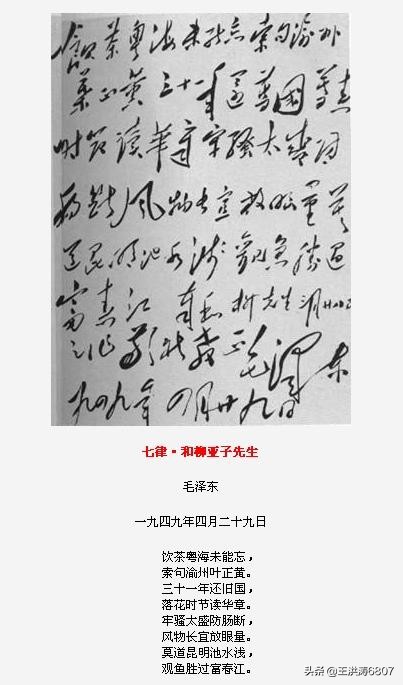 飲茶粵海未能忘索句渝州
葉正黃三十一年還舊國落花
時節讀華章牢騷太盛防
腸斷風物长宜放眼量莫
道昆明池水淺觀魚勝過
富春江 奉和柳先生三月廿八日
之作敬祈教正 毛澤东
一九四九年四月廿九日
七律·和柳亚子先生
毛泽东
一九四九年四月二十九日
饮茶粤海未能忘，
索句渝州叶正黄。
三十一年还旧国，
落花时节读华章。
牢骚太盛防肠断，
风物长宜放眼量。
莫道昆明池水浅，
观鱼胜过富春江。
头条 @王洪涛6807